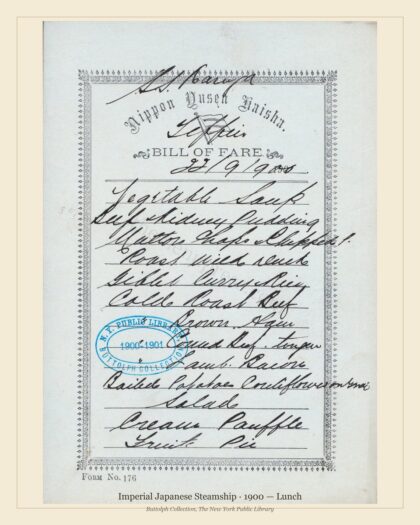 S.S.
Nippon Yusen Kaisha.
Tiffin
BILL OF FARE.
22/9/900
Vegetable Soup
Beef Kidney Pudding
Mutton Chops &
Roast
Giblet Curry Rice
Cold Roast Beef
" Brown
" Corned Beef " tongue
" Lamb. Bacon
Boiled Potatoes Cauliflower
Salade
Cream
Fruit Pie
N. Y. PUBLIC LIBRARY
1900-1901
BUTTOLPH COLLECTION
FORM No. 176
Imperial Japanese Steamship · 1900 — Lunch
Buttolph Collection, The New York Public Library